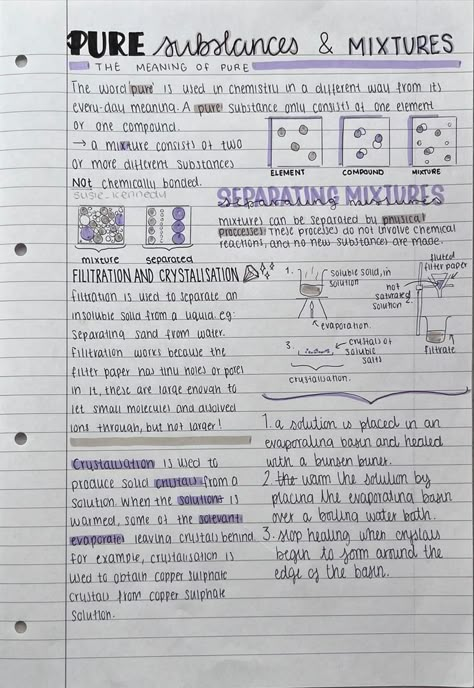 PURE substances & MIXTURES
THE MEANING OF PURE
The word 'pure' is used in chemistry in a different way from its
every-day meaning. A pure substance only consists of one element
or one compound.
→ a mixture consists of two
or more different substances
NOT chemically bonded.
ELEMENT
COMPOUND
MIXTURE
susie_kennedy
mixture
separated
SEPARATING MIXTURES
separating mixtures
mixtures can be separated by physical
processes. These processes do not involve chemical
reactions, and no new substances are made.
FILITRATION AND CRYSTALISATION
filtration is used to separate an
insoluble solid from a liquid. eg:
separating sand from water.
Filitration works because the
filter paper has tiny holes or poles
in it, these are large enough to
let small molecules and disolved
ions through, but not larger!
1.
soluble solid, in
solution
evaporation.
fluted
filter paper
not
saturated
solution 2.
filtrate
3.
crystals of
soluble
salts
crystalisation.
Crystalisation is used to
produce solid crystals from a
solution. When the solution is
warmed, some of the solevent
evaporates leaving crystals behind.
for example, crystalisation is
used to obtain copper sulphate
crystals from copper sulphate
solution.
1. a solution is placed in an
evaporating basin and heated
with a bunsen buner.
2. the warm the solution by
placing the evaporating basin
over a boiling water bath.
3. stop heating when crystals
begin to form around the
edge of the basin.